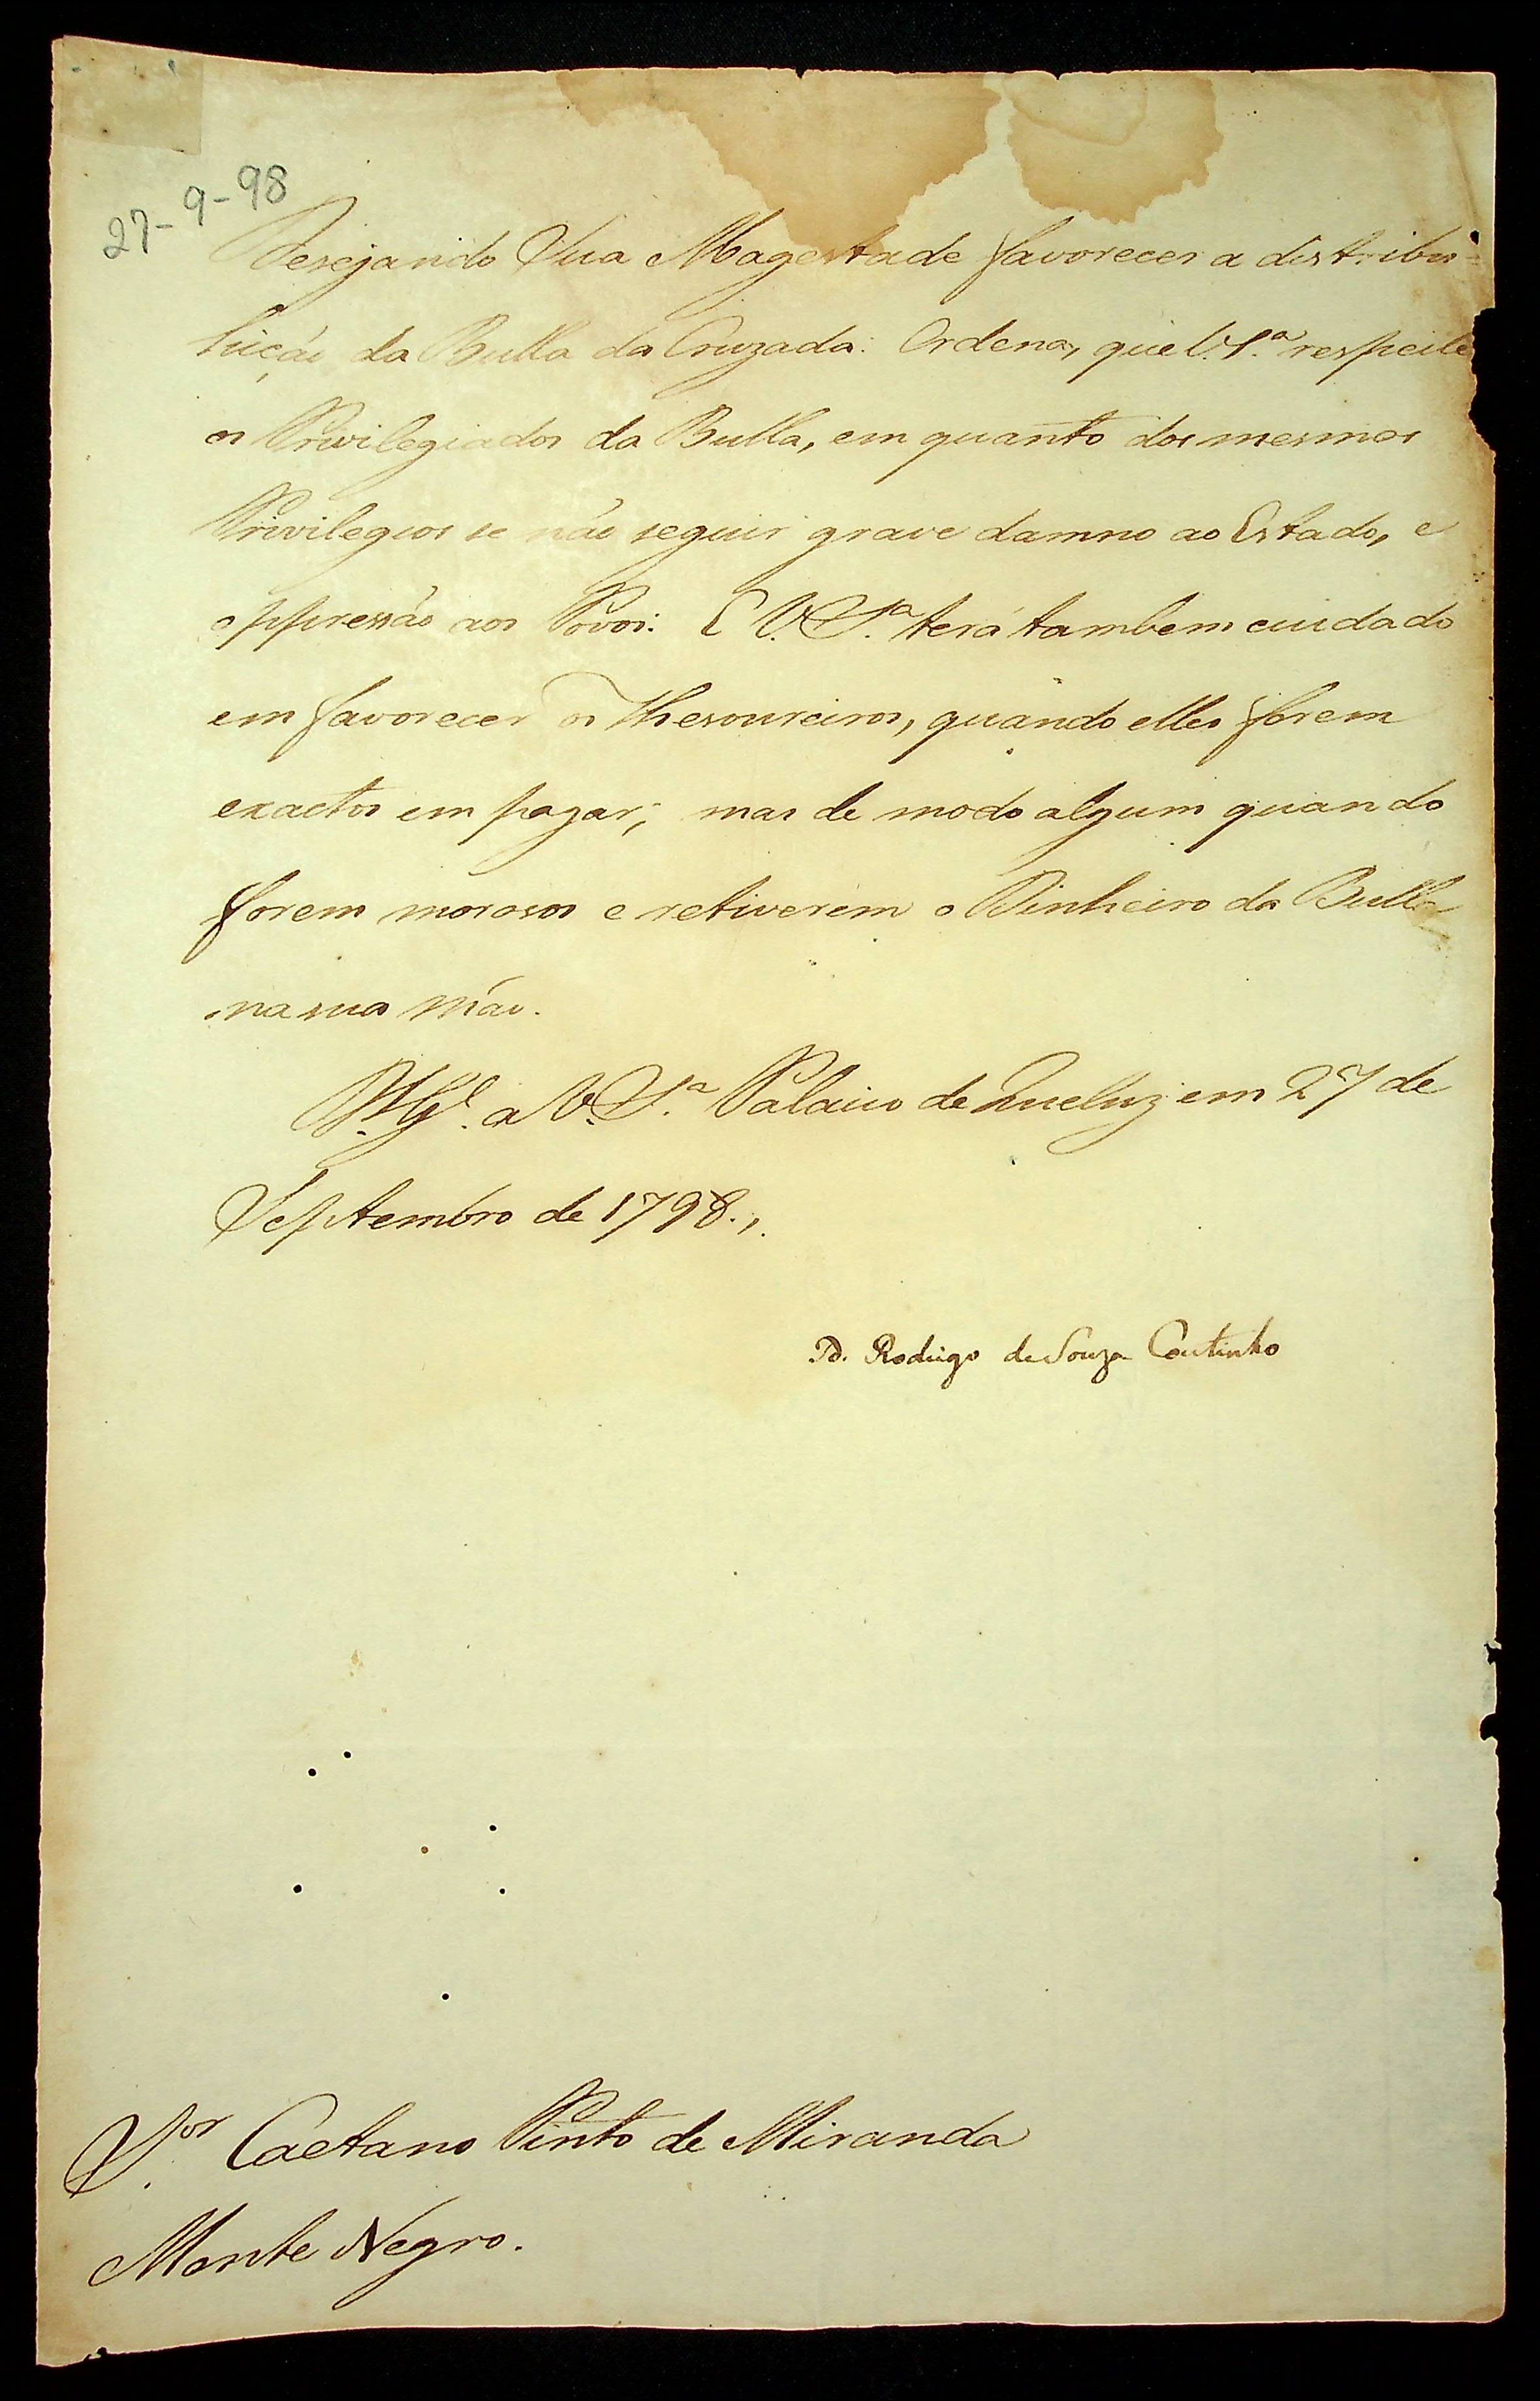 27-9-98
Desejando Sua Magestade favorecer a distribu=
huiçáo da Bulla da Cruzada: Ordena, que V. S.ª respeite
os Privilegiados da Bulla, em quanto dos mesmos
Privilegios se náo seguir grave damno ao Estado, e
oppressáo aos Povos: E V. S.ª terá tambem cuidado
em favorecer os Thesoureiros, quando elles forem
exactos em pagar; mas de modo algum quando
forem morosos e retiverem o Dinheiro da Bulla
na sua máo.
D.s G.e a V. S.ª Palacio de Queluz em 27 de
Septembro de 1798.,
D. Rodrigo de Souza Coutinho
S.or Caetano Pinto de Miranda
Monte Negro.